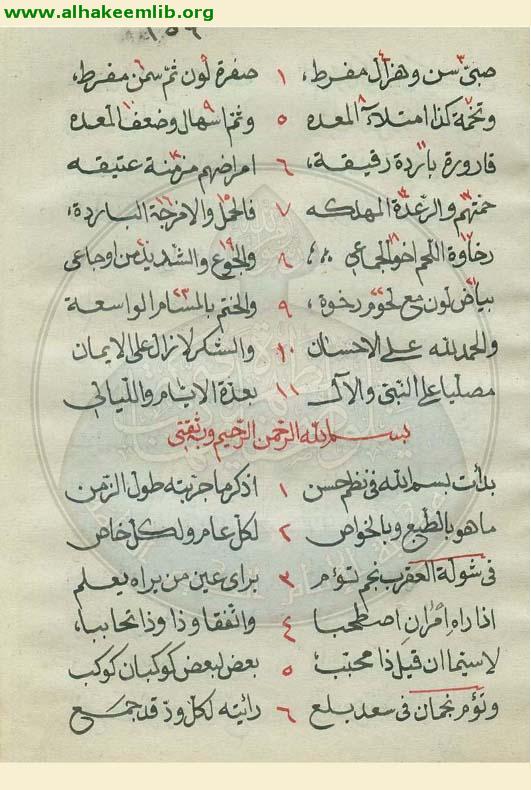 www.alhakeemlib.org
١٥٦
صبيّ سن وهزال مفرط، ١ صفرة لون ثم سمن مفرط،
وتخمة كذا امتلاء المعده ٥ وثم اسهال وضعف المعده
قارورة باردة رقيقة، ٦ امراضهم مزمنة عتيقه
حمتهم والرعدة المهلكه ٧ فالحمل والامزجة الباردة،
رخاوة اللحم اخو الجماع ٨ والجوع والشديد من اوجاعي
بياض لون مع لحوم رخوة، ٩ والختم بالمسام الواسعة
والحمد لله على الاحسان ١٠ والشكر لازال على الايمان
مصليا على النبي والال ١١ بعدة الايام والليالي
بسم الله الرحمن الرحيم وبه ثقتي
بدأت بسم الله في نظم حسن ١ اذكر ما جربته طول الزمن
ما هو بالطبع وبالخواص ٢ لكل عام ولكل خاص
في شولة العقرب نجم توءم ٣ براى عين من يراه يعلم
اذا راه امران اصطحبا ٤ واتفقا وذا وذا تحاببا،
لاسيما ان قيل ذا محبب ٥ بعض لبعض كوكبان كوكب
وتؤم نجمان في سعد بلع ٦ رائيته لكل ود قد جمع